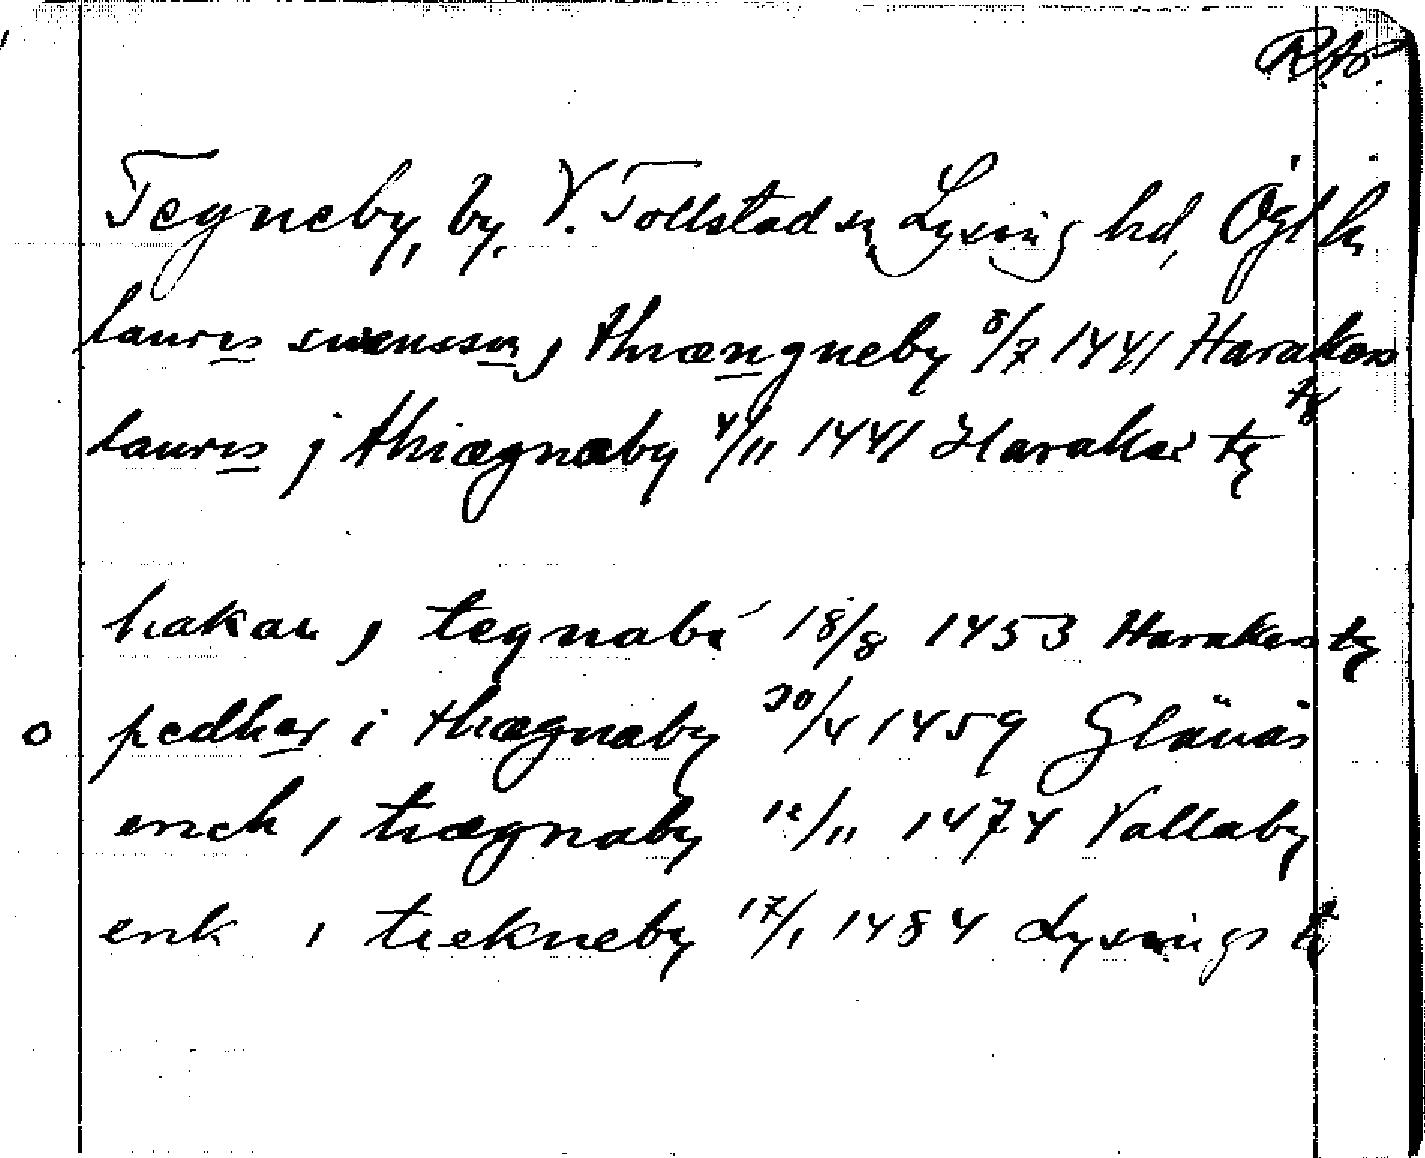 RAP.
Tegneby, by, V. Tollstad sn Lysing hd, Ögl k
laurıs swensson j thiængneby 8/7 1441 Harakers tg
laurıs j thiægnæby 4/11 1441 Haraker tg
hakan j tegnabi 18/8 1453 Harakers tg
o pedher i thiægnæby 30/4 1459 Glänäs
erich i tiægnaby 12/11 1474 Vallaby
erik i tiekneby 17/1 1484 Lysings tg